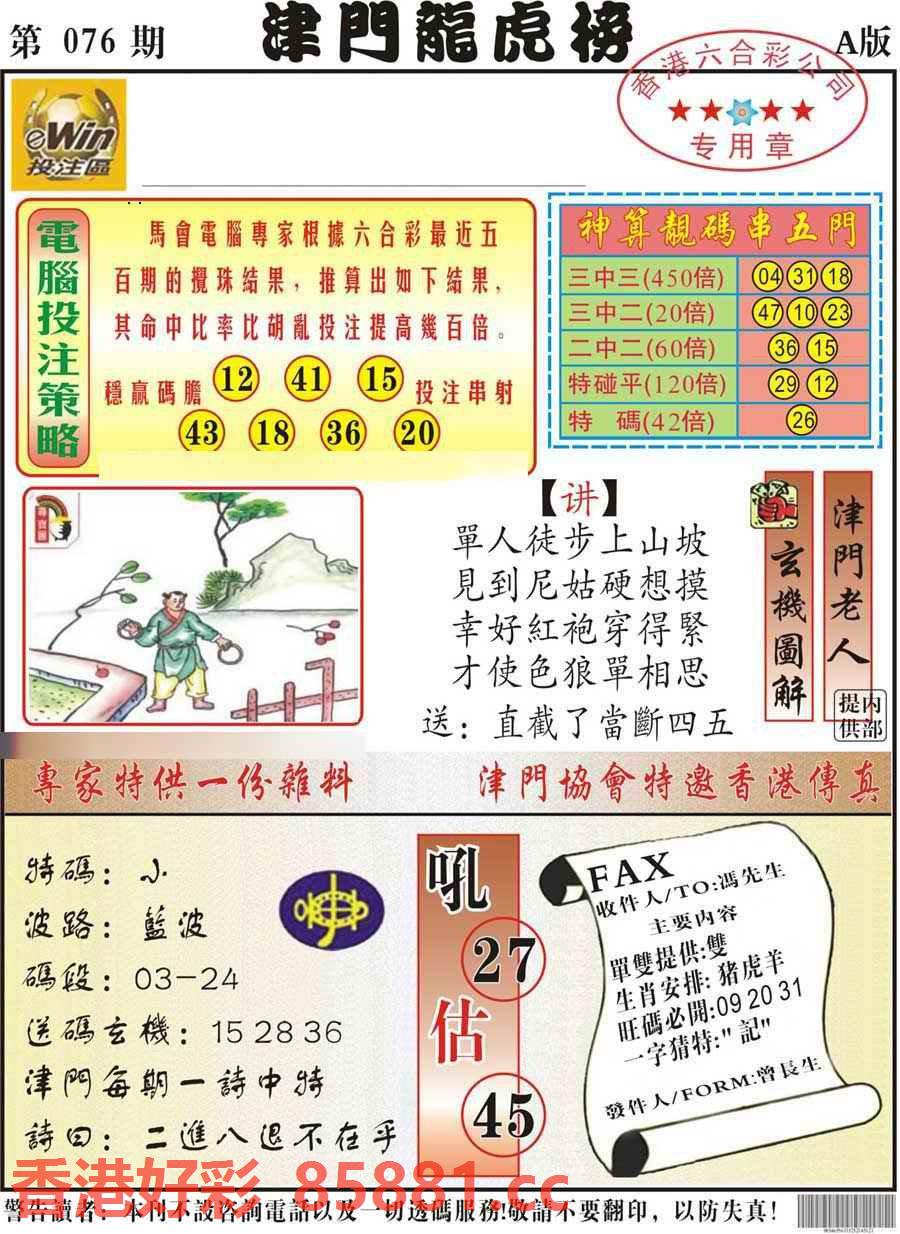 第 076 期
津門龍虎榜
A版
香港六合彩公司
专用章
eWin
投注區
電腦投注策略
馬會電腦專家根據六合彩最近五
百期的攪珠結果，推算出如下結果，
其命中比率比胡亂投注提高幾百倍。
穩贏碼膽 12 41 15 投注串射
43 18 36 20
神算靚碼串五門
三中三(450倍) 04 31 18
三中二(20倍) 47 10 23
二中二(60倍) 36 15
特碰平(120倍) 29 12
特 碼(42倍) 26
尋寶圖
【讲】
單人徒步上山坡
見到尼姑硬想摸
幸好紅袍穿得緊
才使色狼單相思
送：直截了當斷四五
玄機圖解
津門老人
内部提供
專家特供一份雜料
津門協會特邀香港傳真
特碼：小
波路：藍波
碼段：03-24
送碼玄機：15 28 36
津門每期一詩中特
詩曰：二進八退不在乎
吼
27
估
45
FAX
收件人/TO:馮先生
主要内容
單雙提供:雙
生肖安排:猪虎羊
旺碼必開:09 20 31
一字猜特:"記"
發件人/FORM:曾長生
香港好彩 85881.cc
警告讀者：本刊不設咨詢電話以及一切透碼服務!敬請不要翻印，以防失真!